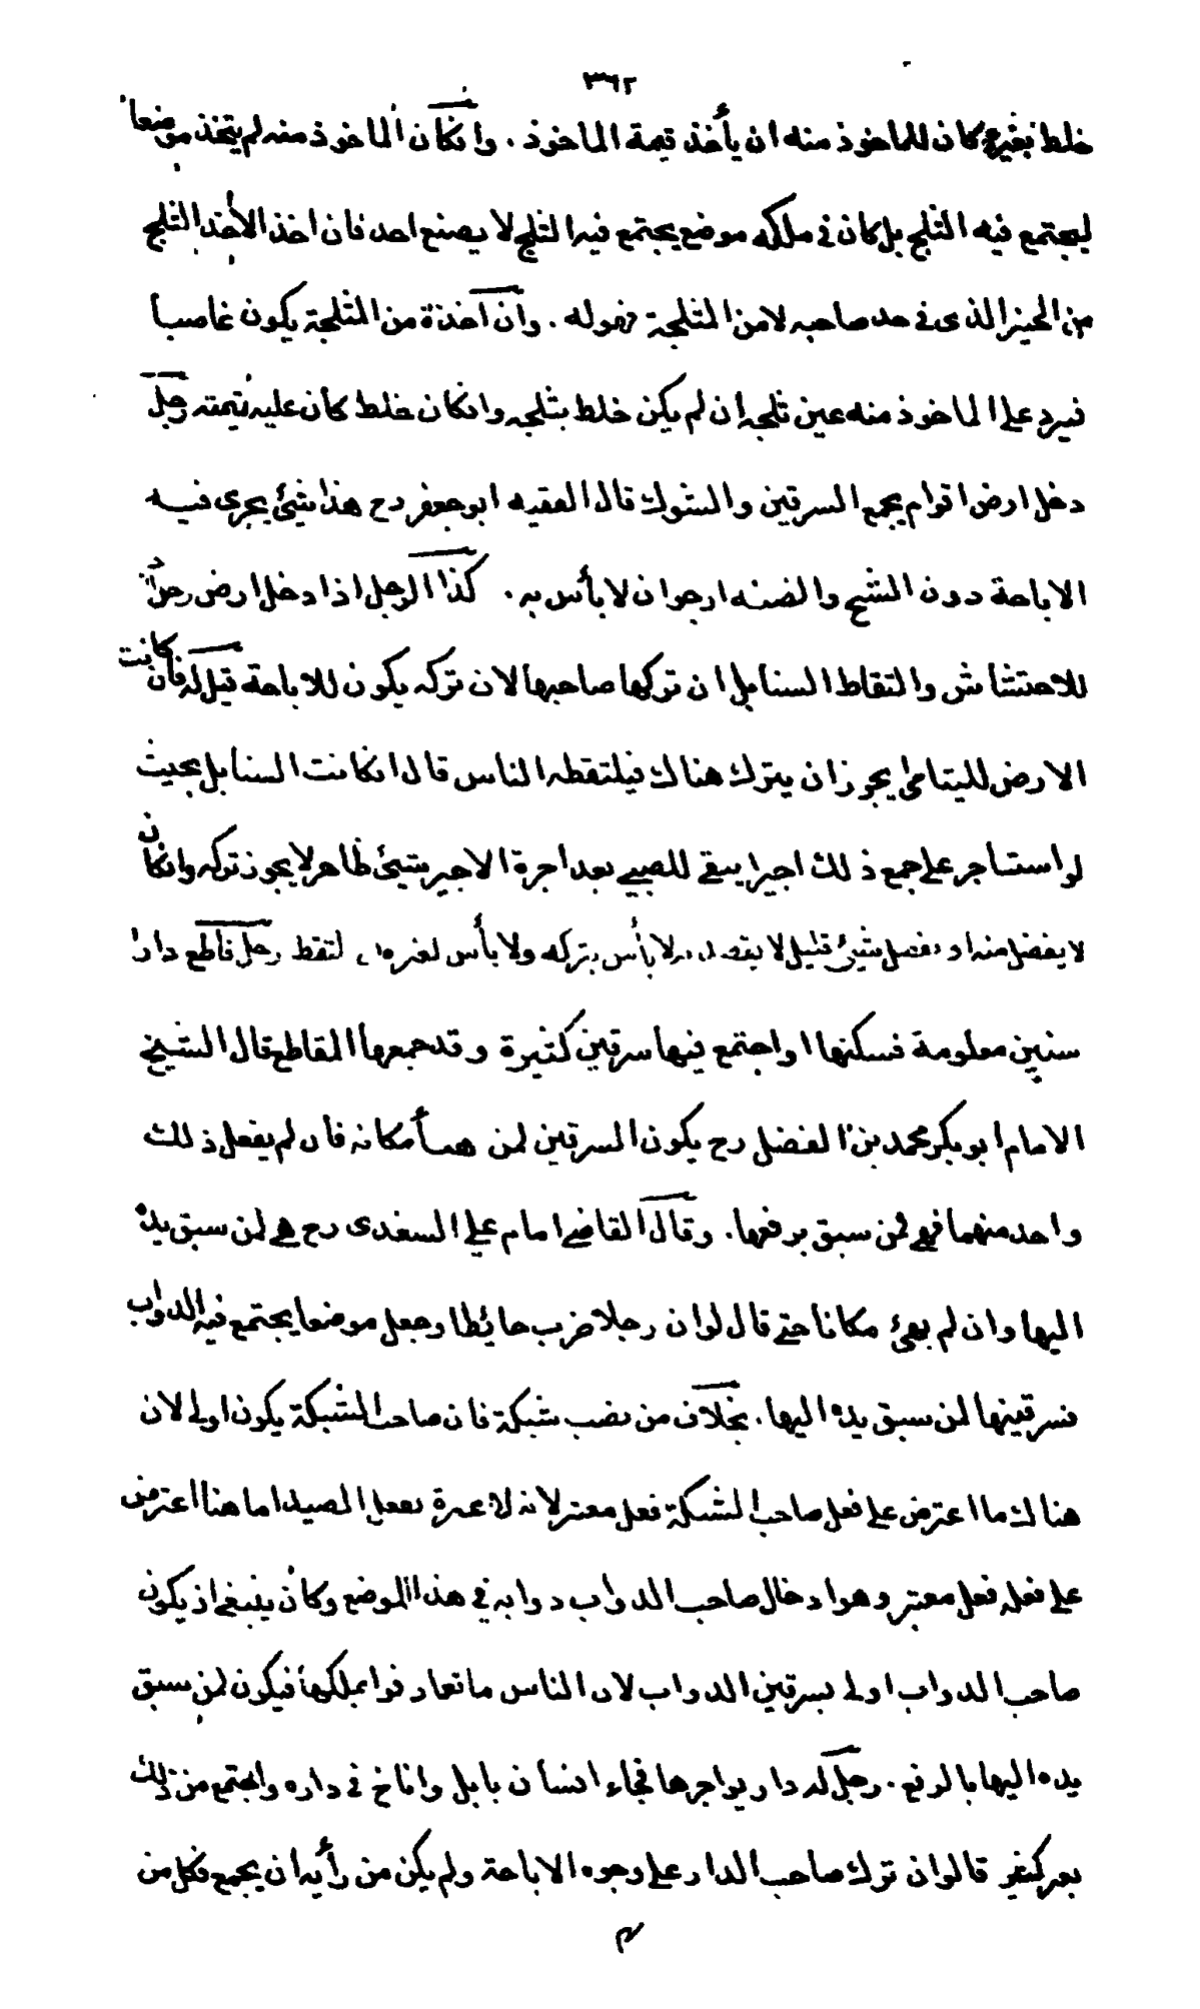 ٣٦٢
خلط بغيره كان للماخوذ منه ان يأخذ قيمة الماخوذ . وانكان الماخوذ منه لم يتخذ موضعا
ليجتمع فيه الثلج بل كان في ملكه موضع يجتمع فيه الثلج لا يصنع احد فان اخذ الآخذ الثلج
من الحيز الذى في حد صاحبه لا من المثلجة فهو له . وان اخذة من المثلجة يكون غاصبا
فيرد على الماخوذ منه عين ثلجه ان لم يكن خلط بثلجه وانكان خلط كان عليه قيمته رجل
دخل ارض اقوام يجمع السرقين والشوك قال الفقيه ابو جعفر رح هذا شئ يجرى فيه
الاباحة دون الشح والضنه ارجوا ان لا بأس به . كذا الرجل اذا دخل ارض رجل
للاحتشاش والتقاط السنابل ان تركها صاحبها لان تركه يكون للاباحة قيل له فان كانت
الارض لليتامى يجوز ان يترك هناك فيلتقطه الناس قال انكانت السنابل بحيث
لو استاجر على جمع ذلك اجيرا يبقى للصبي بعد اجرة الاجير شئ ظاهر لا يجوز تركه وانكان
لا يفضل منه او يفضل شئ قليل لا يقصد اليه لا بأس بتركه ولا بأس لغيره ان يلتقط رجل قاطع دارا
سنين معلومة فسكنها واجتمع فيها سرقين كثيرة وقد جمعها المقاطع قال الشيخ
الامام ابو بكر محمد بن الفضل رح يكون السرقين لمن هيأ مكانه فان لم يفعل ذلك
واحد منهما فهي لمن سبق برفعها . وقال القاضي امام علي السغدى رح هي لمن سبق يده
اليها وان لم يهئ مكانا حتى قال لو ان رجلا ضرب حائطا وجعل موضعا يجتمع فيه الدواب
فسرقينها لمن سبق يده اليها . بخلاف من نصب شبكة فان صاحب الشبكة يكون اولى لان
هناك ما اعترض على فعل صاحب الشبكة فعل معتبر لانه لا عبرة بفعل الصيد اما هنا اعترض
على فعله فعل معتبر وهو ادخال صاحب الدواب دوابه في هذا الموضع وكان ينبغي ان يكون
صاحب الدواب اولى بسرقين الدواب لان الناس ما تعارفوا تملكها فيكون لمن سبق
يده اليها بالرفع . رجل له دار يواجرها فجاء انسان بابل واناخ في داره واجتمع من ذلك
بعر كثير قالوا ان ترك صاحب الدار على وجوه الاباحة ولم يكن من رأيه ان يجمع فكل من